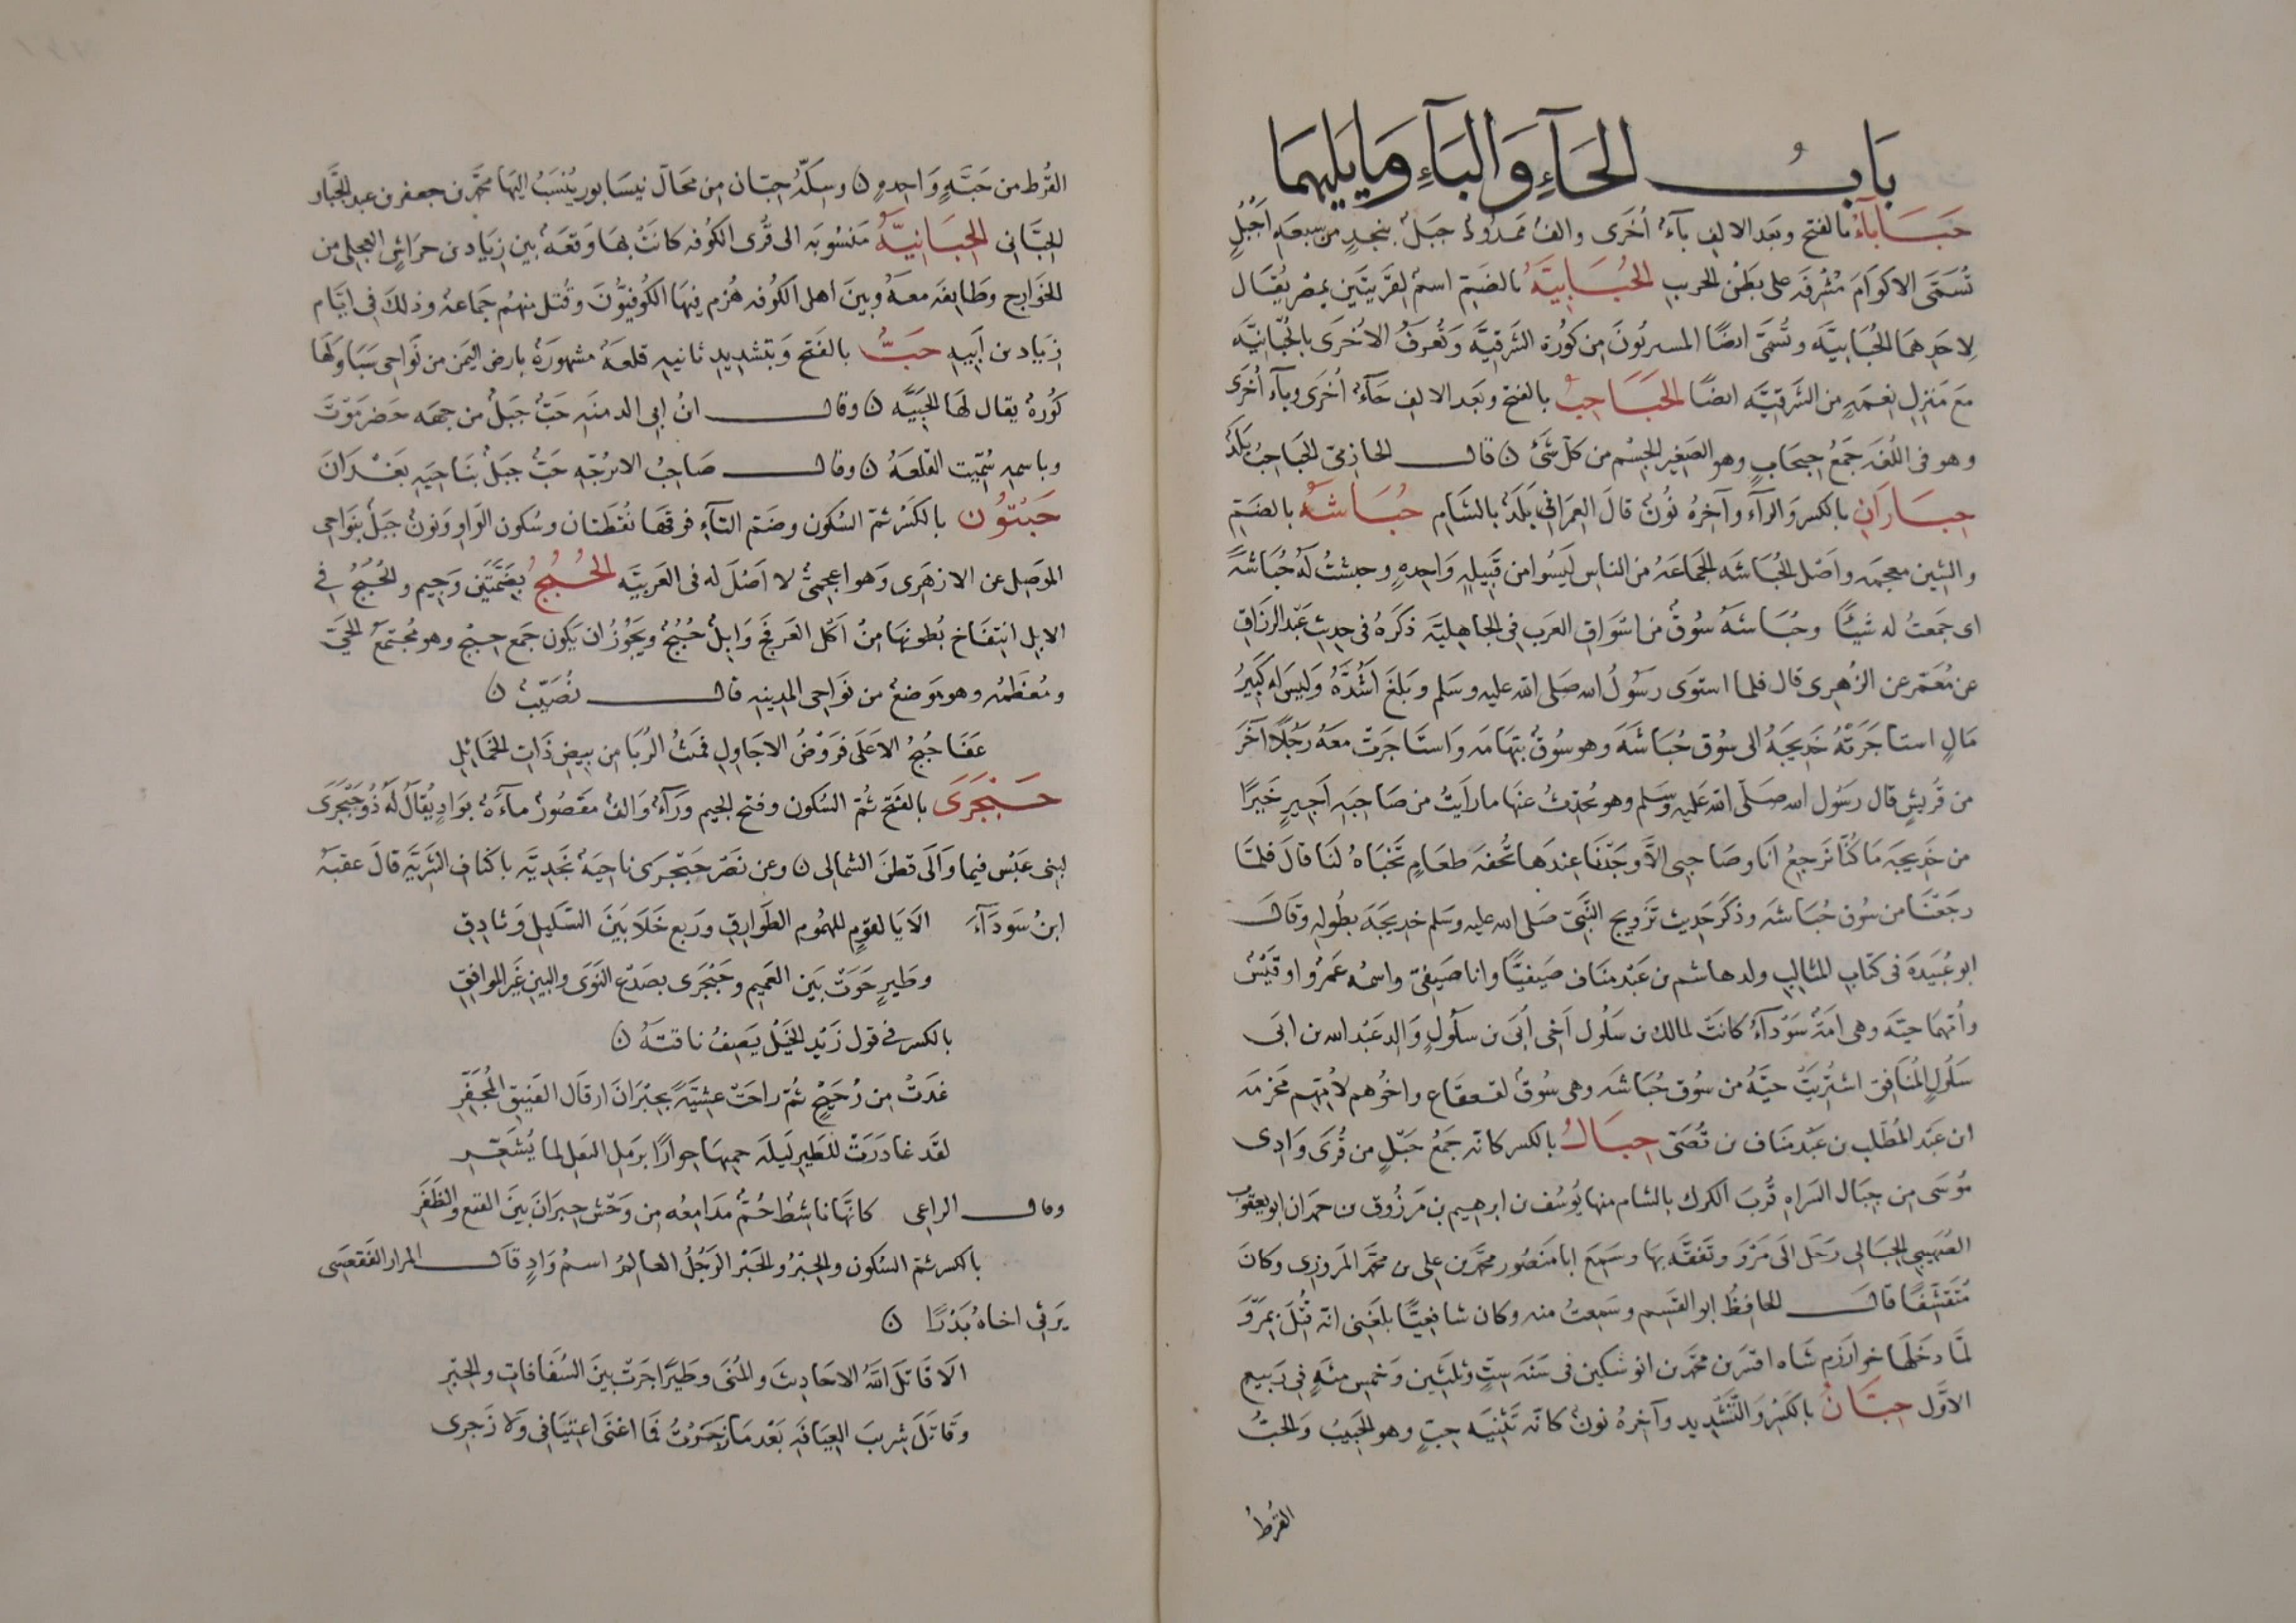 باب الحاء والباء وما يليهما
حَبَاباء بالفتح وبعد الالف باء اخرى والف ممدودة جبل بنجد من سبعة اجبل
تسمى الاكوام مشرفة على بطن الحرب الحُبَابيّة بالضم اسم لقريتين بمصر يقال
لاحدهما الحبابية وتسمى ايضا المسربون من كورة الشرقية وتعرف الاخرى بالحبّانية
مع منزل نعمة من الشرقية ايضا الحَبَاحِب بالفتح وبعد الالف حاء اخرى وباء اخرى
وهو في اللغة جمع حبحاب وهو الصغير الجسم من كل شئ ن قال الحازمي الحباحب بلد
حِبَارَان بالكسر والراء وآخره نون قال العمراني بلد بالشام حُبَاشة بالضم
والشين معجمه واصل الحباشه الجماعه من الناس ليسوا من قبيلة واحدة وحبشت له حباشة
اى جمعت له شيئا وحباشة سوق من اسواق العرب في الجاهلية ذكره في حديث عبد الرزاق
عن معمر عن الزهرى قال فلما استوى رسول الله صلى الله عليه وسلم وبلغ اشده وليس له كبير
مال استاجرته خديجة الى سوق حباشة وهو سوق بتهامه واستاجرت معه رجلا آخر
من قريش قال رسول الله صلى الله عليه وسلم وهو يحدث عنها ما رايت من صاحبة اجير خيرا
من خديجه ما كنا نرجع انا وصاحبى الا وجدنا عندها تحفه طعام تخباه لنا قال فلما
رجعنا من سوق حباشه وذكر حديث تزويج النبى صلى الله عليه وسلم خديجة بطوله وقال
ابو عبيدة في كتاب المثالب ولد هاشم بن عبد مناف صيفيا وابا صيفى واسمه عمرو او قيس
وامهما حيّة وهى امة سوداء كانت لمالك بن سلول اخى ابى بن سلول والد عبد الله بن ابى
سلول المنافق اشتريت حية من سوق حباشه وهى سوق لقينقاع واخوهم لامهم مخرمه
ابن عبد المطلب بن عبد مناف بن قصى حِبَال بالكسر كانه جمع حبل من قرى وادى
موسى من جبال السراه قرب الكرك بالشام منها يوسف بن ابرهيم بن مرزوق بن حمدان ابو يعقوب
الصهيبى الحبالى رحل الى مرو وتفقه بها وسمع ابا منصور محمد بن على بن محمد المروزى وكان
متقشفا قال الحافظ ابو القسم وسمعت منه وكان شافعيا بلغنى انه قتل بمرو
لما دخلها خوارزم شاه اتسز بن محمد بن انوشتكين في سنة ست وثلثين وخمس مئة في ربيع
الاول حِبّان بالكسر والتشديد وآخره نون كانه تثنية حب وهو الحبيب والحب
القرط
القرط من حبة واحدة ن وسكة حبان من محال نيسابور ينسب اليها محمد بن جعفر بن عبد الجبار
الحبّانى الحِبَانيّة منسوبه الى قرى الكوفه كانت بها وقعة بين زياد بن خراش العجلى من
الخوارج وطايفة معه وبين اهل الكوفه هزم فيها الكوفيون وقتل منهم جماعة وذلك في ايام
زياد بن ابيه حَبّ بالفتح وبتشديد ثانيه قلعة مشهورة بارض اليمن من نواحى سبا ولها
كورة يقال لها الحبيّه ن وقال ابن ابى الدمنه حب جبل من جهه حضرموت
وباسمه سميت القلعة ن وقال صاحب الاترجه حب جبل بناحيه بعدان
حِبتُون بالكسر ثم السكون وضم التاء فوقها نقطتان وسكون الواو ونون جبل بنواحى
الموصل عن الازهرى وهو اعجمى لا اصل له في العربيه الحُبُج بضمتين وجيم والحبج في
الابل انتفاخ بطونها من اكل العرفج وابل حبج ويجوز ان يكون جمع حبج وهو مجتمع الحى
ومعظمه وهو موضع من نواحى المدينه قال نصيب ن
عفا حبج الاعلى فروض الاجاول فميث الربا من بيض ذات الخمائل
حَبْجَرَى بالفتح ثم السكون وفتح الجيم وراء والف مقصور ماءة بواد يقال له ذو حبجرى
لبنى عبس فيما والى قطن الشمالى ن وعن نصر حبجرى ناحية نجدية باكناف الشربة قال عقبة
ابن سوداء الا يا لقوم للهموم الطوارق وربع خلا بين السليل وثادق
وطير جرت بين العميم وحبجرى بصدع النوى والبين غير الموافق
بالكسر في قول زيد الخيل يصف ناقته ن
غدت من زخيخ ثم راحت عشية بحبران ارقال الفنيق المجفر
لقد غادرت للطير ليله خمسها حوارا برمل النعل لما يشعر
وقال الراعى كانها ناشط حم مدامعه من وحش حبران بين القنع والظفر
بالكسر ثم السكون والحبر والحبر الرجل العالم اسم واد قال المرار الفقعسى
يرثى اخاه بدرا ن
الا قاتل الله الاحاديث والمنى وطيرا جرت بين السعافات والحبر
وقاتل تثريب العيافة بعدما زجرت فما اغنى اعتيافى ولا زجرى